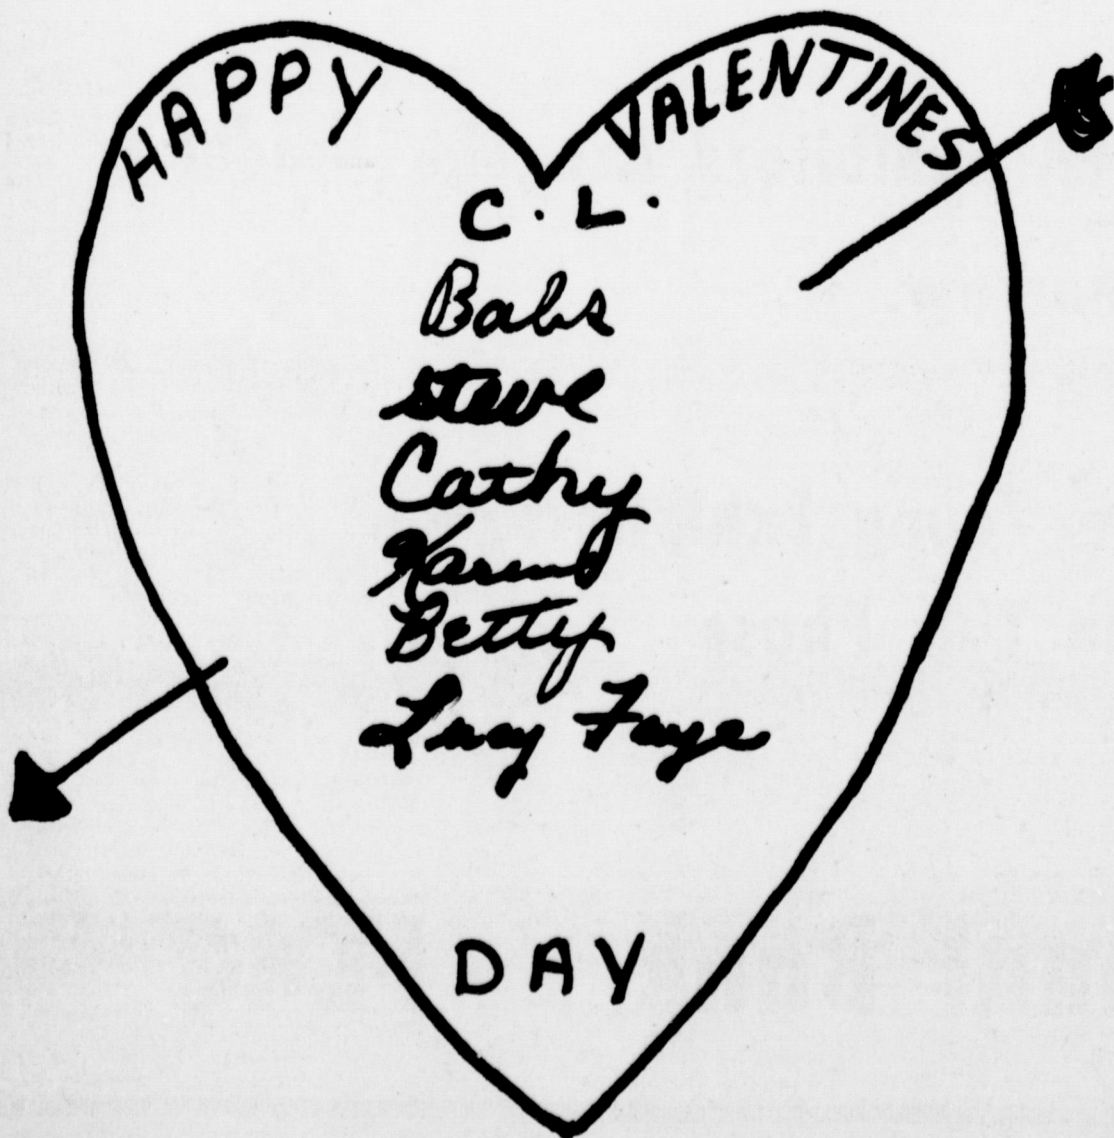 HAPPY VALENTINES
C. L.
Babs
Steve
Cathy
Betty
Lucy Faye
DAY